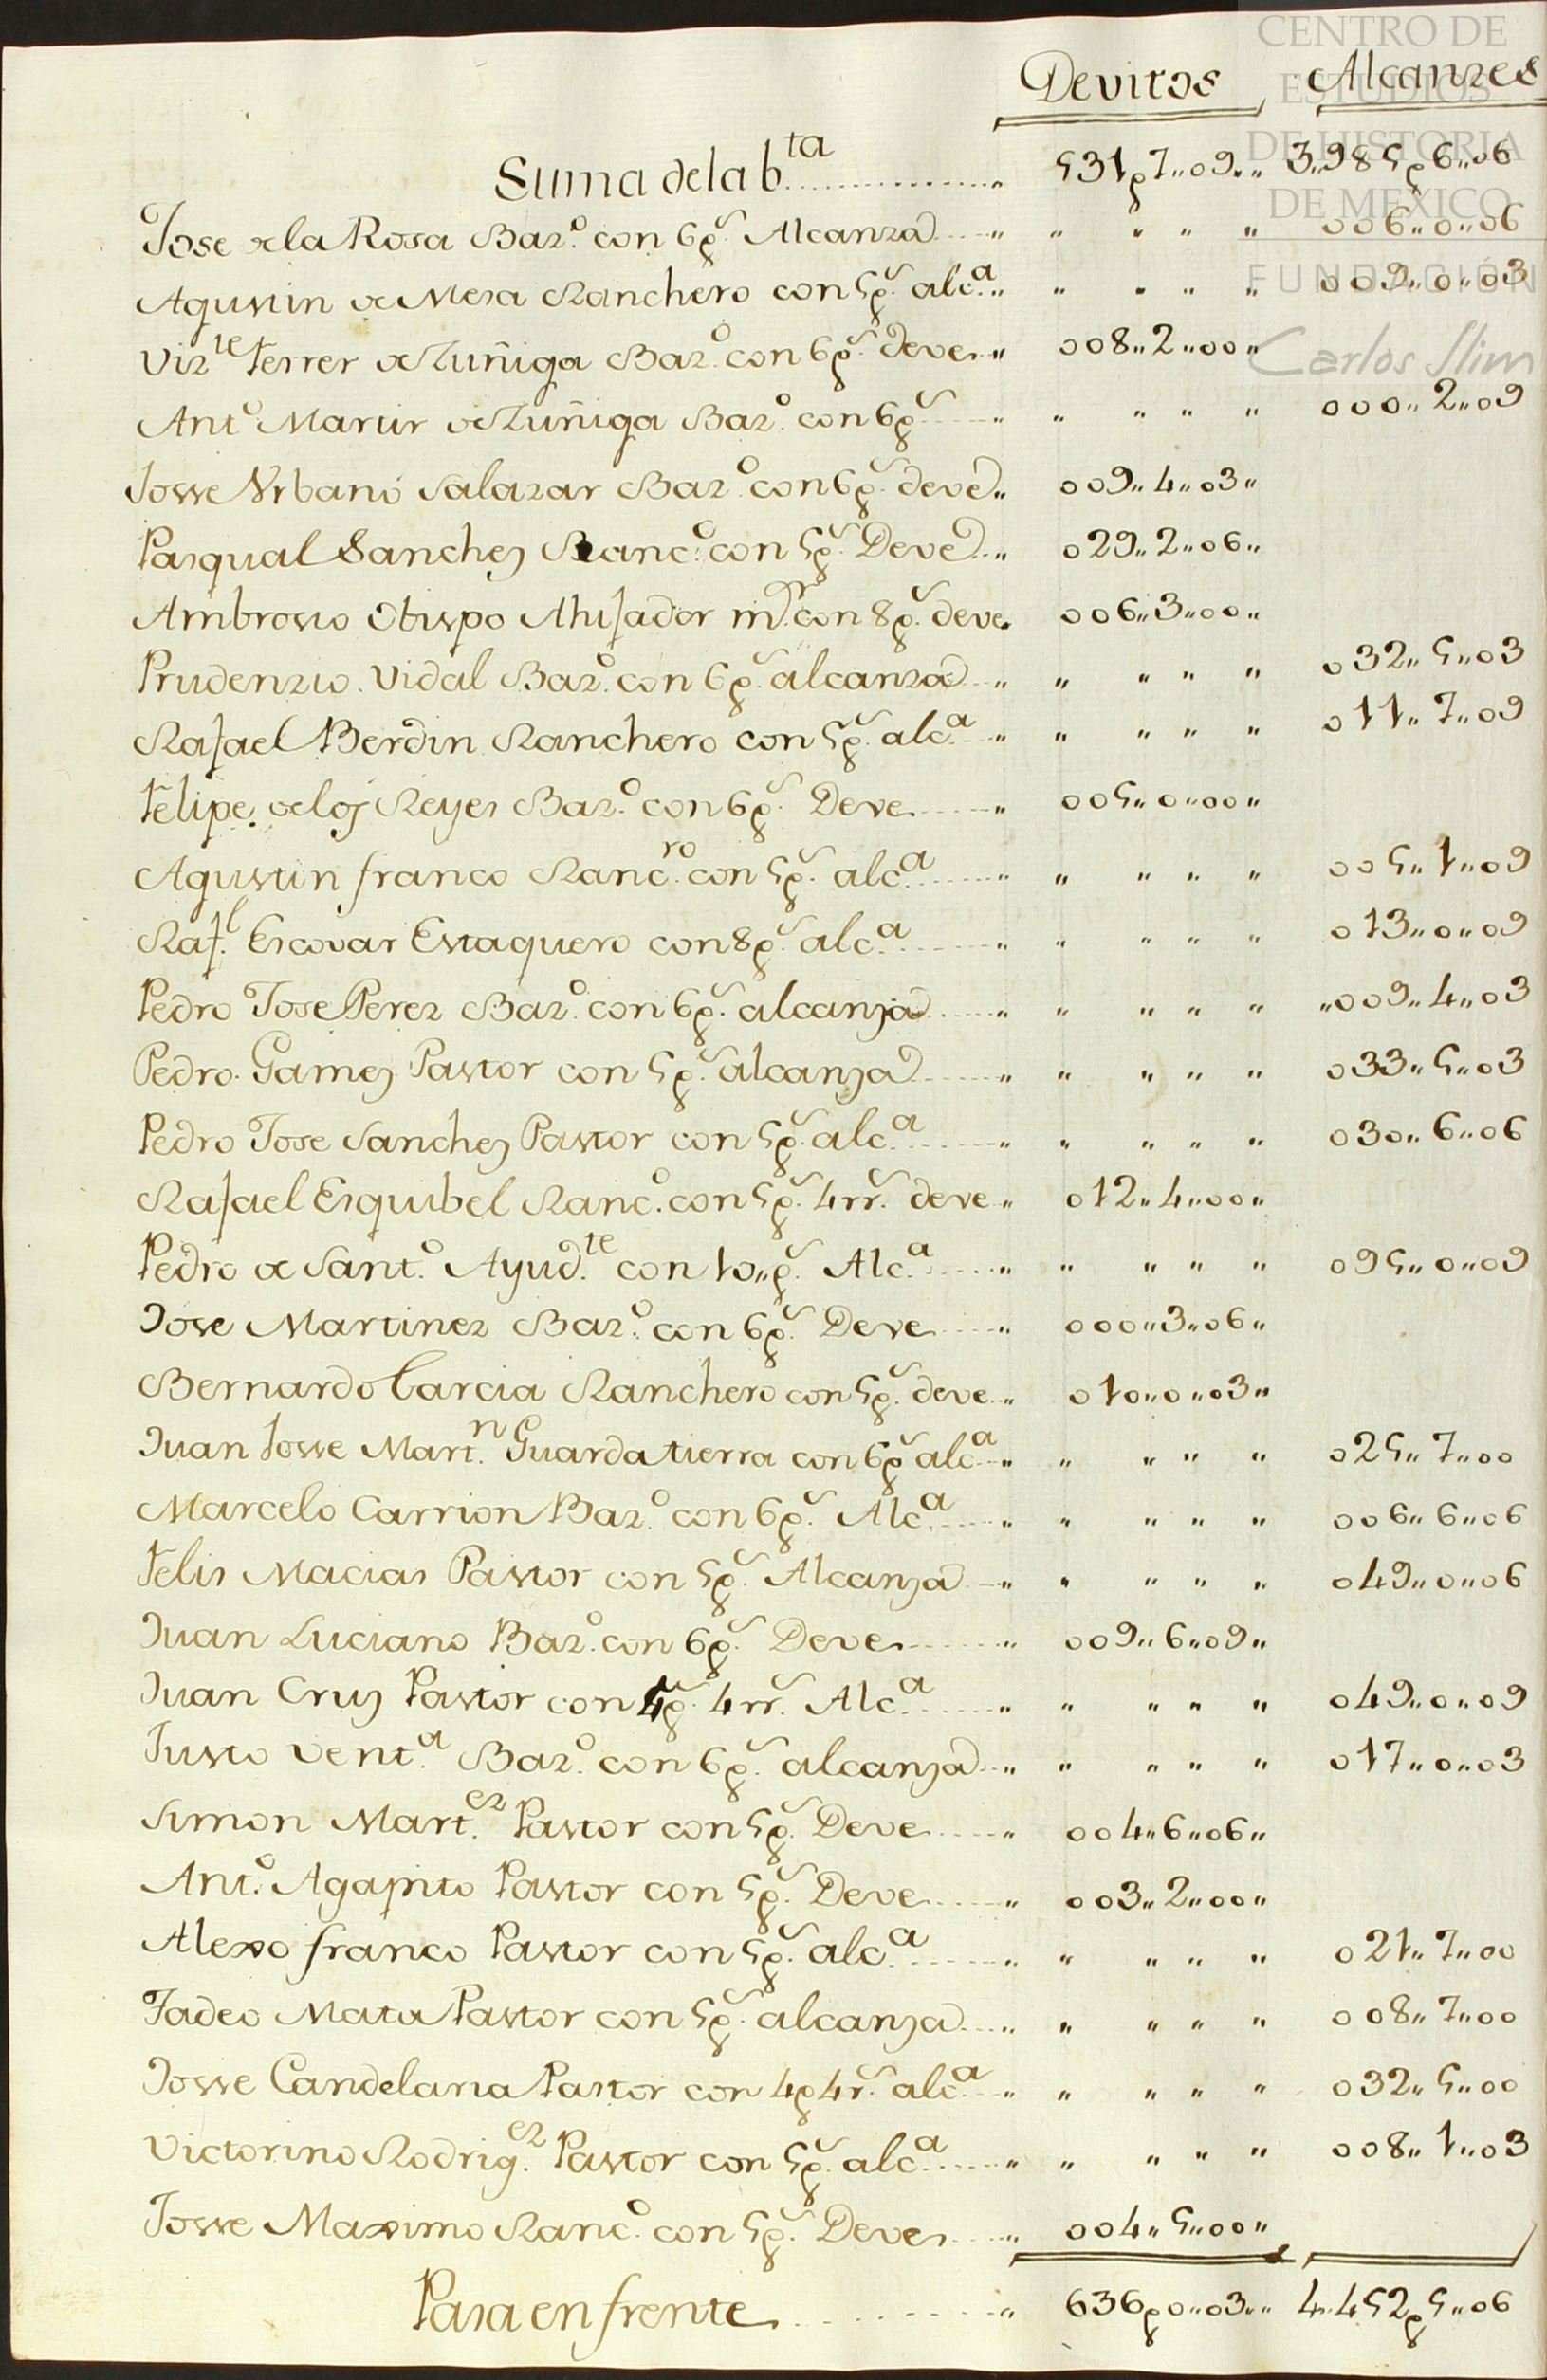 CENTRO DE
ESTUDIOS
DE HISTORIA
DE MEXICO
FUNDACIÓN
Carlos Slim
Devitos Alcanzes
Suma de la bta 531p7..09.. 3..985p6..06
Jose de la Rosa Bazo. con 6ps. Alcanza " " " " 006..0..06
Agustin de Mesa Ranchero con 5ps. alca. " " " " 009..0..03
Vizte Ferrer de Zuñiga Bazo. con 6ps. deve " 008..2..00"
Anto Martir de Zuñiga Bazo. con 6ps " " " " 000..2..09
Josse Vrbano Salazar Bazo. con 6ps. deve " 009..4..03"
Pasqual Sanchez Ranco. con 5ps. Deve " 029..2..06"
Ambrosio Obispo Ahijador mr. con 8ps. deve 006..3..00"
Prudenzio Vidal Bazo. con 6ps. alcanza " " " " 032..5..03
Rafael Berdin Ranchero con 5ps. alca. " " " " 011..7..09
Felipe de los Reyes Bazo. con 6ps. Deve " 005..0..00"
Agustin franco Rancro. con 5ps. alca. " " " " 005..1..09
Rafl. Escovar Estaquero con 8ps. alca. " " " " 013..0..09
Pedro Jose Perez Bazo. con 6ps. alcanza " " " " "009..4..03
Pedro Gamez Pastor con 5ps. alcanza " " " " 033..5..03
Pedro Jose Sanchez Pastor con 5ps. alca. " " " " 030..6..06
Rafael Esquibel Ranco. con 5ps. 4rrs. deve " 012..4..00"
Pedro de Santo. Ayudte. con 10..ps. Alca. " " " " 095..0..09
Jose Martinez Bazo. con 6ps. Deve " 000..3..06"
Bernardo Garcia Ranchero con 5ps. deve " 010..0..03"
Juan Josse Martn. Guardatierra con 6ps alca. " " " " 025..7..00
Marcelo Carrion Bazo. con 6ps. Alca. " " " " 006..6..06
Felis Macias Pastor con 5ps. Alcanza " " " " 049..0..06
Juan Luciano Bazo. con 6ps. Deve " 009..6..09"
Juan Cruz Pastor con 4ps. 4rrs. Alca. " " " " 049..0..09
Justo Venta. Bazo. con 6ps. alcanza " " " " 017..0..03
Simon Martez. Pastor con 5ps. Deve " 004..6..06"
Anto. Agapito Pastor con 5ps. Deve " 003..2..00"
Alexo franco Pastor con 5ps. alca. " " " " 021..7..00
Tadeo Mata Pastor con 5ps. alcanza " " " " 008..7..00
Josse Candelaria Pastor con 4p4rs. alca. " " " " 032..5..00
Victorino Rodrigez. Pastor con 5ps. alca. " " " " 008..1..03
Josse Maximo Ranco. con 5ps. Deve " 004..5..00"
Pasa en frente " 636p0..03.. 4..452p5..06